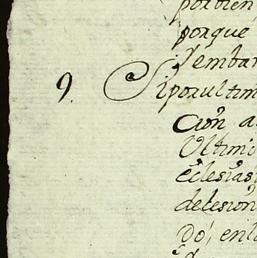 por bien
porque
Yembar
9. Siporultim
Cion a
Ultimo
eclesias
detesion
do, enl